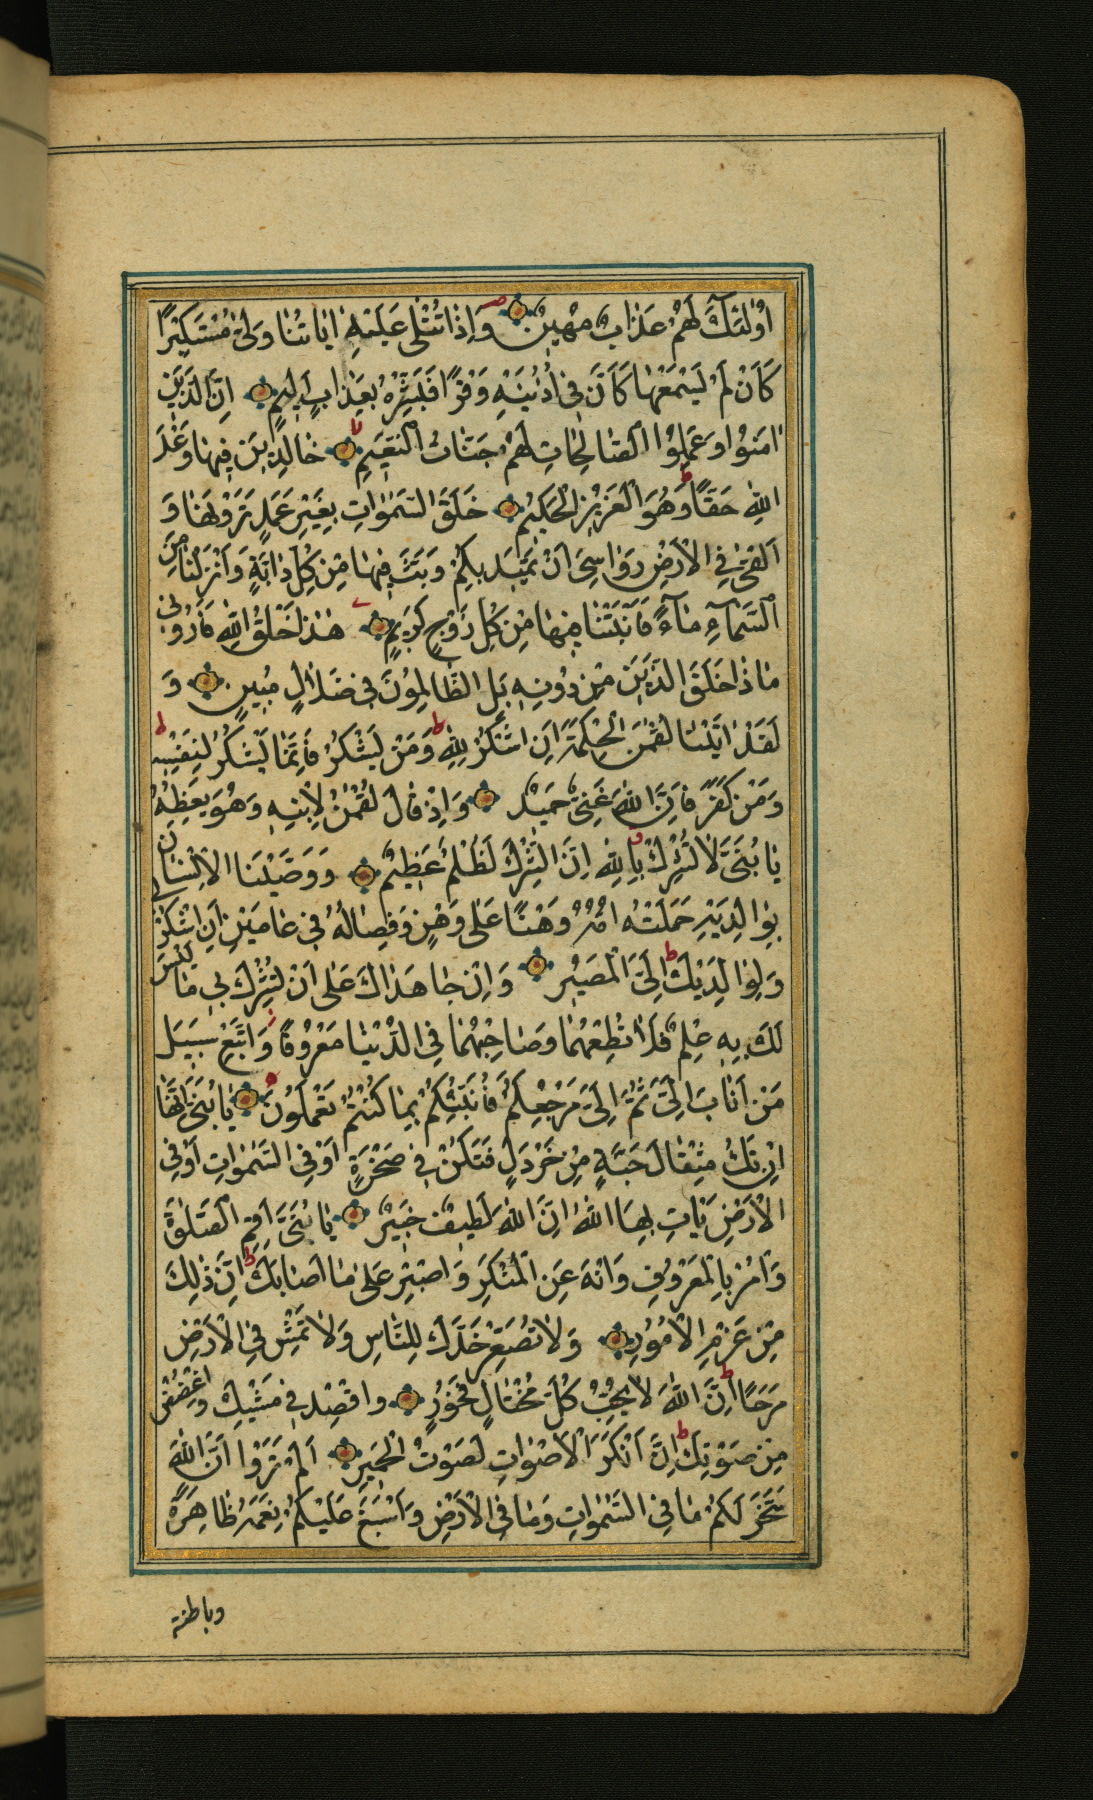 اُولٰئِكَ لَهُمْ عَذَابٌ مُهِينٌ وَاِذَا تُتْلٰى عَلَيْهِ اٰيَاتُنَا وَلّٰى مُسْتَكْبِرًا
كَاَنْ لَمْ يَسْمَعْهَا كَاَنَّ فِي اُذُنَيْهِ وَقْرًا فَبَشِّرْهُ بِعَذَابٍ اَلِيمٍ اِنَّ الَّذِينَ
اٰمَنُوا وَعَمِلُوا الصَّالِحَاتِ لَهُمْ جَنَّاتُ النَّعِيمِ خَالِدِينَ فِيهَا وَعْدَ
اللّٰهِ حَقًّا وَهُوَ الْعَزِيزُ الْحَكِيمُ خَلَقَ السَّمٰوَاتِ بِغَيْرِ عَمَدٍ تَرَوْنَهَا وَ
اَلْقٰى فِي الْاَرْضِ رَوَاسِيَ اَنْ تَمِيدَ بِكُمْ وَبَثَّ فِيهَا مِنْ كُلِّ دَابَّةٍ وَاَنْزَلْنَا مِنَ
السَّمَآءِ مَآءً فَاَنْبَتْنَا فِيهَا مِنْ كُلِّ زَوْجٍ كَرِيمٍ هٰذَا خَلْقُ اللّٰهِ فَاَرُونِي
مَاذَا خَلَقَ الَّذِينَ مِنْ دُونِهِ بَلِ الظَّالِمُونَ فِي ضَلَالٍ مُبِينٍ وَ
لَقَدْ اٰتَيْنَا لُقْمٰنَ الْحِكْمَةَ اَنِ اشْكُرْ لِلّٰهِ وَمَنْ يَشْكُرْ فَاِنَّمَا يَشْكُرُ لِنَفْسِهِ
وَمَنْ كَفَرَ فَاِنَّ اللّٰهَ غَنِيٌّ حَمِيدٌ وَاِذْ قَالَ لُقْمٰنُ لِابْنِهِ وَهُوَ يَعِظُهُ
يَا بُنَيَّ لَا تُشْرِكْ بِاللّٰهِ اِنَّ الشِّرْكَ لَظُلْمٌ عَظِيمٌ وَوَصَّيْنَا الْاِنْسَانَ
بِوَالِدَيْهِ حَمَلَتْهُ اُمُّهُ وَهْنًا عَلٰى وَهْنٍ وَفِصَالُهُ فِي عَامَيْنِ اَنِ اشْكُرْ لِي
وَلِوَالِدَيْكَ اِلَيَّ الْمَصِيرُ وَاِنْ جَاهَدَاكَ عَلٰى اَنْ تُشْرِكَ بِي مَا لَيْسَ
لَكَ بِهِ عِلْمٌ فَلَا تُطِعْهُمَا وَصَاحِبْهُمَا فِي الدُّنْيَا مَعْرُوفًا وَاتَّبِعْ سَبِيلَ
مَنْ اَنَابَ اِلَيَّ ثُمَّ اِلَيَّ مَرْجِعُكُمْ فَاُنَبِّئُكُمْ بِمَا كُنْتُمْ تَعْمَلُونَ يَا بُنَيَّ اِنَّهَا
اِنْ تَكُ مِثْقَالَ حَبَّةٍ مِنْ خَرْدَلٍ فَتَكُنْ فِي صَخْرَةٍ اَوْ فِي السَّمٰوَاتِ اَوْ فِي
الْاَرْضِ يَاْتِ بِهَا اللّٰهُ اِنَّ اللّٰهَ لَطِيفٌ خَبِيرٌ يَا بُنَيَّ اَقِمِ الصَّلٰوةَ
وَاْمُرْ بِالْمَعْرُوفِ وَانْهَ عَنِ الْمُنْكَرِ وَاصْبِرْ عَلٰى مَا اَصَابَكَ اِنَّ ذٰلِكَ
مِنْ عَزْمِ الْاُمُورِ وَلَا تُصَعِّرْ خَدَّكَ لِلنَّاسِ وَلَا تَمْشِ فِي الْاَرْضِ
مَرَحًا اِنَّ اللّٰهَ لَا يُحِبُّ كُلَّ مُخْتَالٍ فَخُورٍ وَاقْصِدْ فِي مَشْيِكَ وَاغْضُضْ
مِنْ صَوْتِكَ اِنَّ اَنْكَرَ الْاَصْوَاتِ لَصَوْتُ الْحَمِيرِ اَلَمْ تَرَوْا اَنَّ اللّٰهَ
سَخَّرَ لَكُمْ مَا فِي السَّمٰوَاتِ وَمَا فِي الْاَرْضِ وَاَسْبَغَ عَلَيْكُمْ نِعَمَهُ ظَاهِرَةً
وباطنة